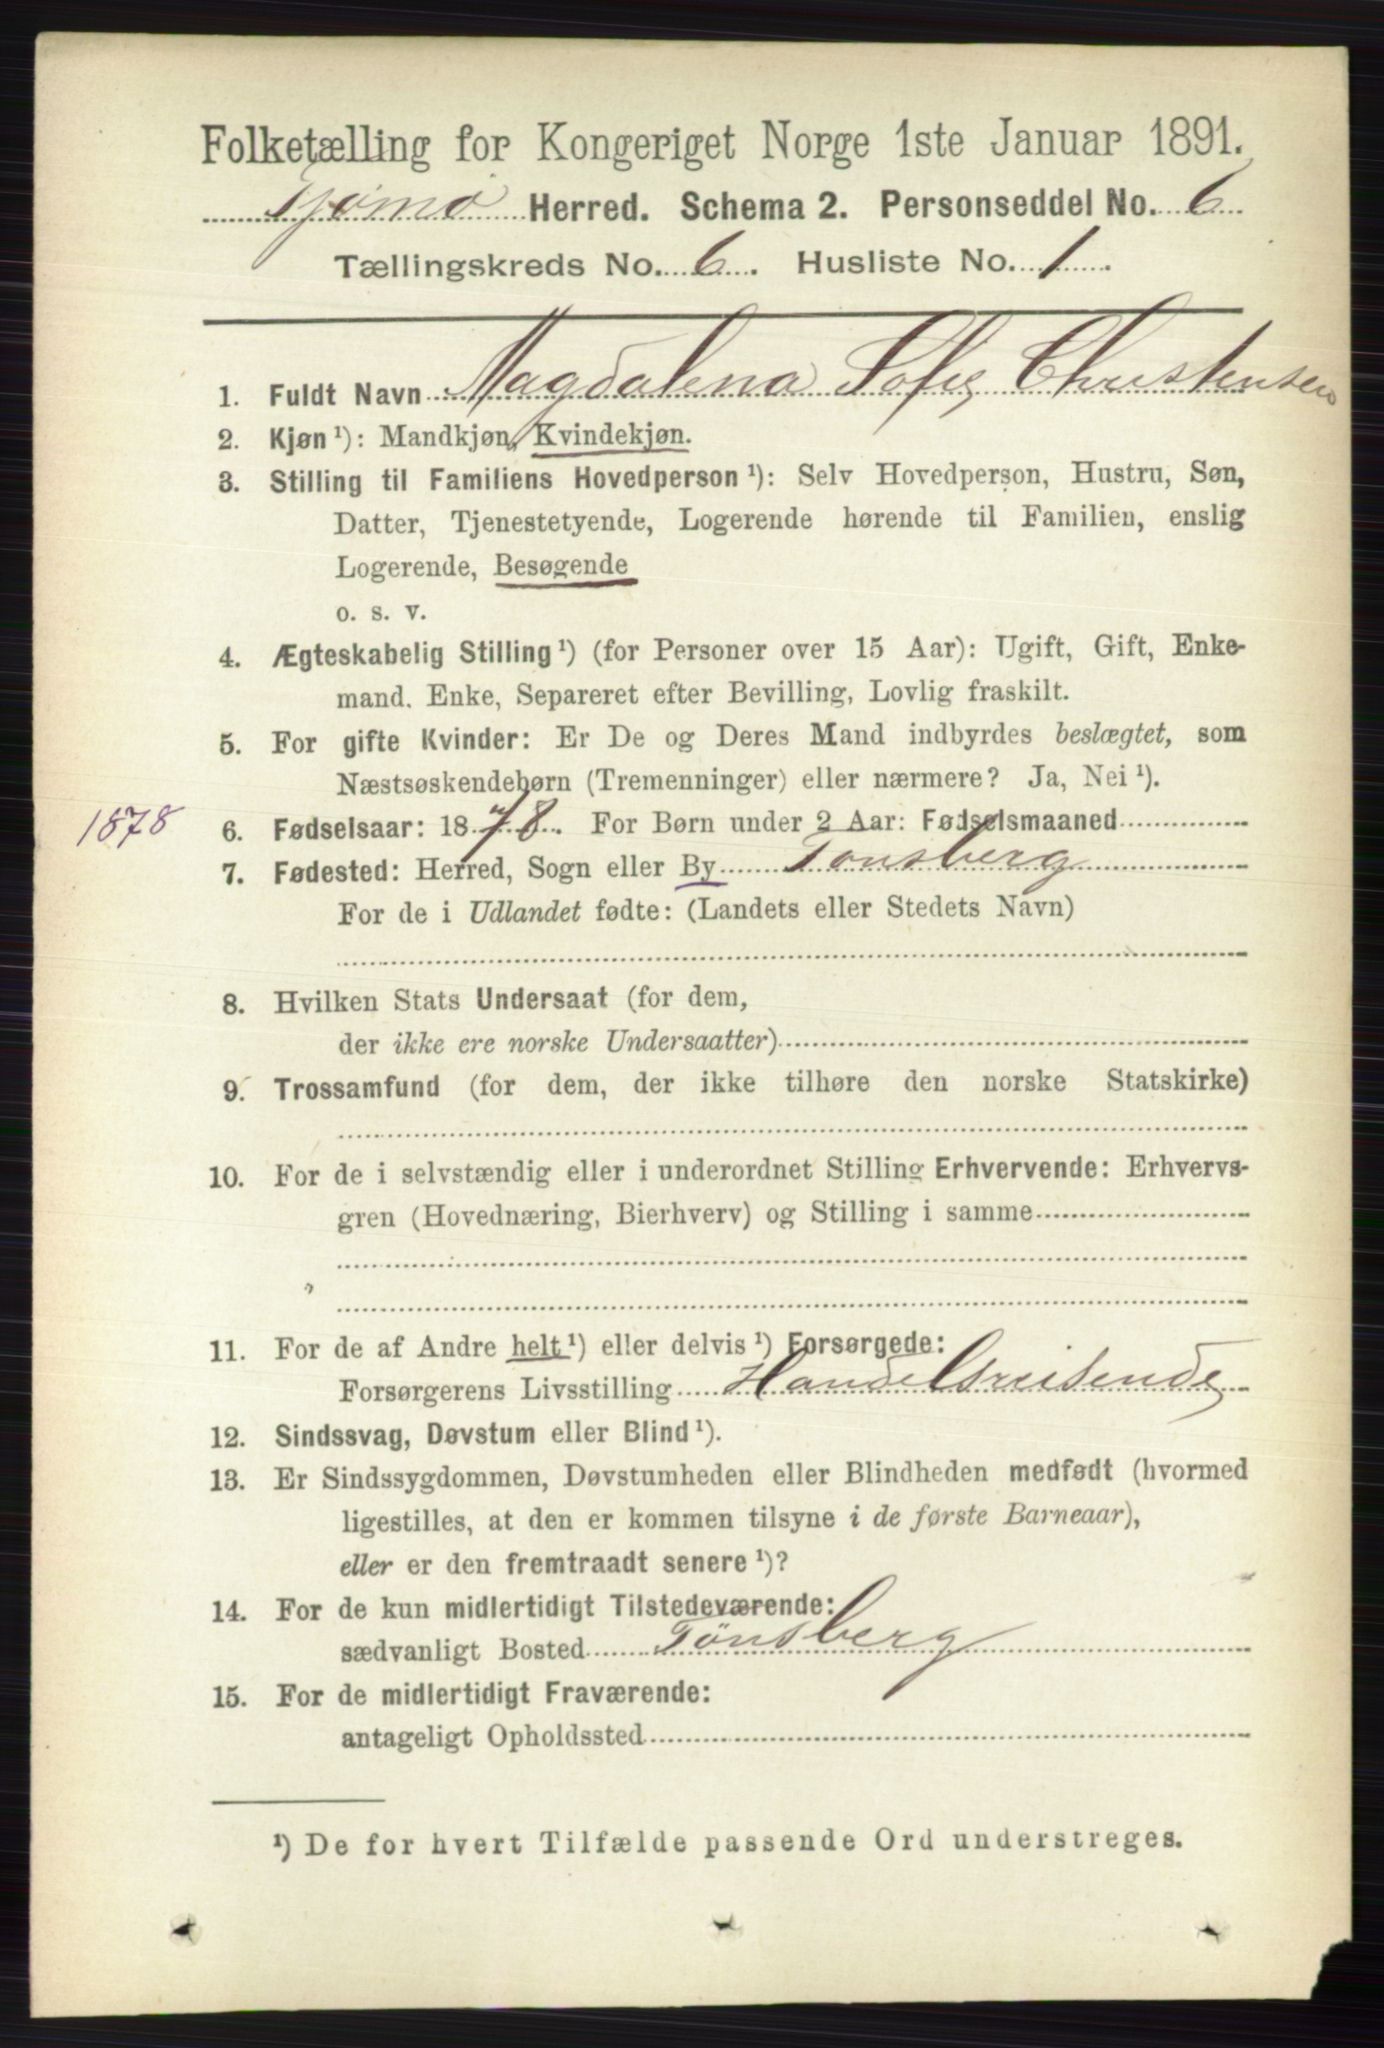 Folketælling for Kongeriget Norge 1ste Januar 1891.
Tjømø Herred. Schema 2. Personseddel No. 6
Tællingskreds No. 6. Husliste No. 1
1. Fuldt Navn Magdalena Sofie Christensen
2. Kjøn ¹): Mandkjøn, Kvindekjøn.
3. Stilling til Familiens Hovedperson ¹): Selv Hovedperson, Hustru, Søn,
Datter, Tjenestetyende, Logerende hørende til Familien, enslig
Logerende, Besøgende
o. s. v.
4. Ægteskabelig Stilling ¹) (for Personer over 15 Aar): Ugift, Gift, Enke-
mand. Enke, Separeret efter Bevilling, Lovlig fraskilt.
5. For gifte Kvinder: Er De og Deres Mand indbyrdes beslægtet, som
Næstsøskendebørn (Tremenninger) eller nærmere? Ja, Nei ¹).
1878
6. Fødselsaar: 1878. For Børn under 2 Aar: Fødselsmaaned
7. Fødested: Herred, Sogn eller By Tonsberg
For de i Udlandet fødte: (Landets eller Stedets Navn)
8. Hvilken Stats Undersaat (for dem,
der ikke ere norske Undersaatter)
9. Trossamfund (for dem, der ikke tilhøre den norske Statskirke)
10. For de i selvstændig eller i underordnet Stilling Erhvervende: Erhvervs-
gren (Hovednæring, Bierhverv) og Stilling i samme
11. For de af Andre helt ¹) eller delvis ¹) Forsørgede:
Forsørgerens Livsstilling Handelsreisende
12. Sindssvag, Døvstum eller Blind ¹).
13. Er Sindssygdommen, Døvstumheden eller Blindheden medfødt (hvormed
ligestilles, at den er kommen tilsyne i de første Barneaar),
eller er den fremtraadt senere ¹)?
14. For de kun midlertidigt Tilstedeværende:
sædvanligt Bosted Tønsberg
15. For de midlertidigt Fraværende:
antageligt Opholdssted
¹) De for hvert Tilfælde passende Ord understreges.